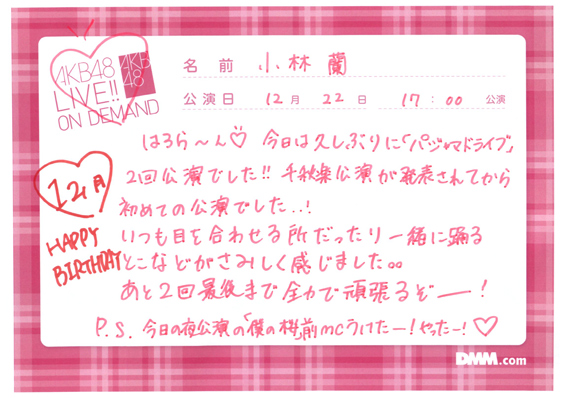 AKB48
LIVE!!
ON DEMAND
AKB
48
名前 小林 蘭
公演日 12月 22日 17:00 公演
はろら〜ん♡ 今日は久しぶりに「パジャマドライブ」
2回公演でした!! 千秋楽公演が発表されてから
初めての公演でした..!
いつも目を合わせる所だったり一緒に踊る
とこなどがさみしく感じました。。
あと2回最後まで全力で頑張るぞー!
P.S. 今日の夜公演の「僕の桜」前mcうけたー!やったー!♡
12月
HAPPY
BIRTHDAY
DMM.com